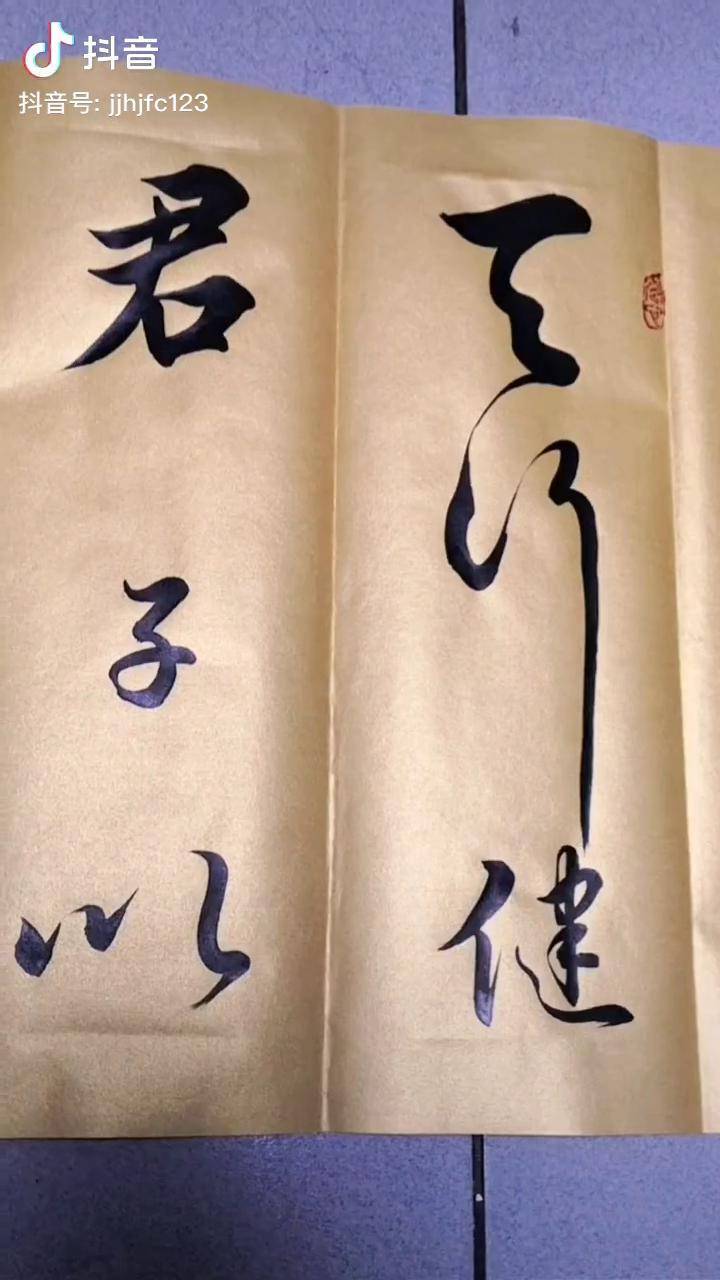 抖音
抖音号: jjhjfc123
天行健
君子以